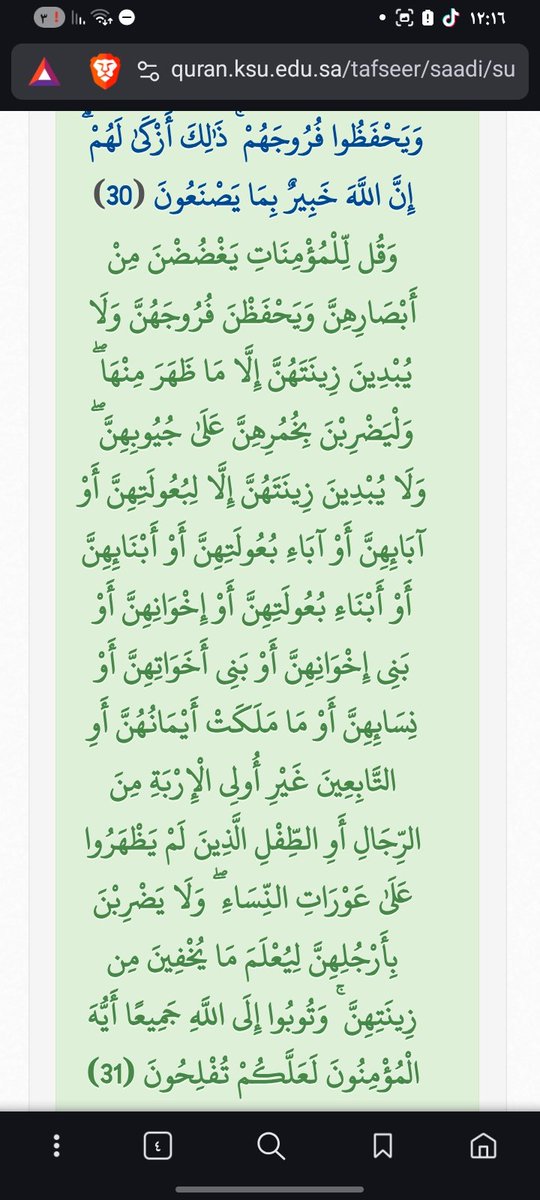 ١٢:١٦
٣
quran.ksu.edu.sa/tafseer/saadi/su
وَيَحْفَظُوا فُرُوجَهُمْ ۚ ذَٰلِكَ أَزْكَىٰ لَهُمْ ۗ
إِنَّ اللَّهَ خَبِيرٌ بِمَا يَصْنَعُونَ (30)
وَقُل لِّلْمُؤْمِنَاتِ يَغْضُضْنَ مِنْ
أَبْصَارِهِنَّ وَيَحْفَظْنَ فُرُوجَهُنَّ وَلَا
يُبْدِينَ زِينَتَهُنَّ إِلَّا مَا ظَهَرَ مِنْهَا ۖ
وَلْيَضْرِبْنَ بِخُمُرِهِنَّ عَلَىٰ جُيُوبِهِنَّ ۖ
وَلَا يُبْدِينَ زِينَتَهُنَّ إِلَّا لِبُعُولَتِهِنَّ أَوْ
آبَائِهِنَّ أَوْ آبَاءِ بُعُولَتِهِنَّ أَوْ أَبْنَائِهِنَّ
أَوْ أَبْنَاءِ بُعُولَتِهِنَّ أَوْ إِخْوَانِهِنَّ أَوْ
بَنِي إِخْوَانِهِنَّ أَوْ بَنِي أَخَوَاتِهِنَّ أَوْ
نِسَائِهِنَّ أَوْ مَا مَلَكَتْ أَيْمَانُهُنَّ أَوِ
التَّابِعِينَ غَيْرِ أُولِي الْإِرْبَةِ مِنَ
الرِّجَالِ أَوِ الطِّفْلِ الَّذِينَ لَمْ يَظْهَرُوا
عَلَىٰ عَوْرَاتِ النِّسَاءِ ۖ وَلَا يَضْرِبْنَ
بِأَرْجُلِهِنَّ لِيُعْلَمَ مَا يُخْفِينَ مِن
زِينَتِهِنَّ ۚ وَتُوبُوا إِلَى اللَّهِ جَمِيعًا أَيُّهَ
الْمُؤْمِنُونَ لَعَلَّكُمْ تُفْلِحُونَ (31)
٤